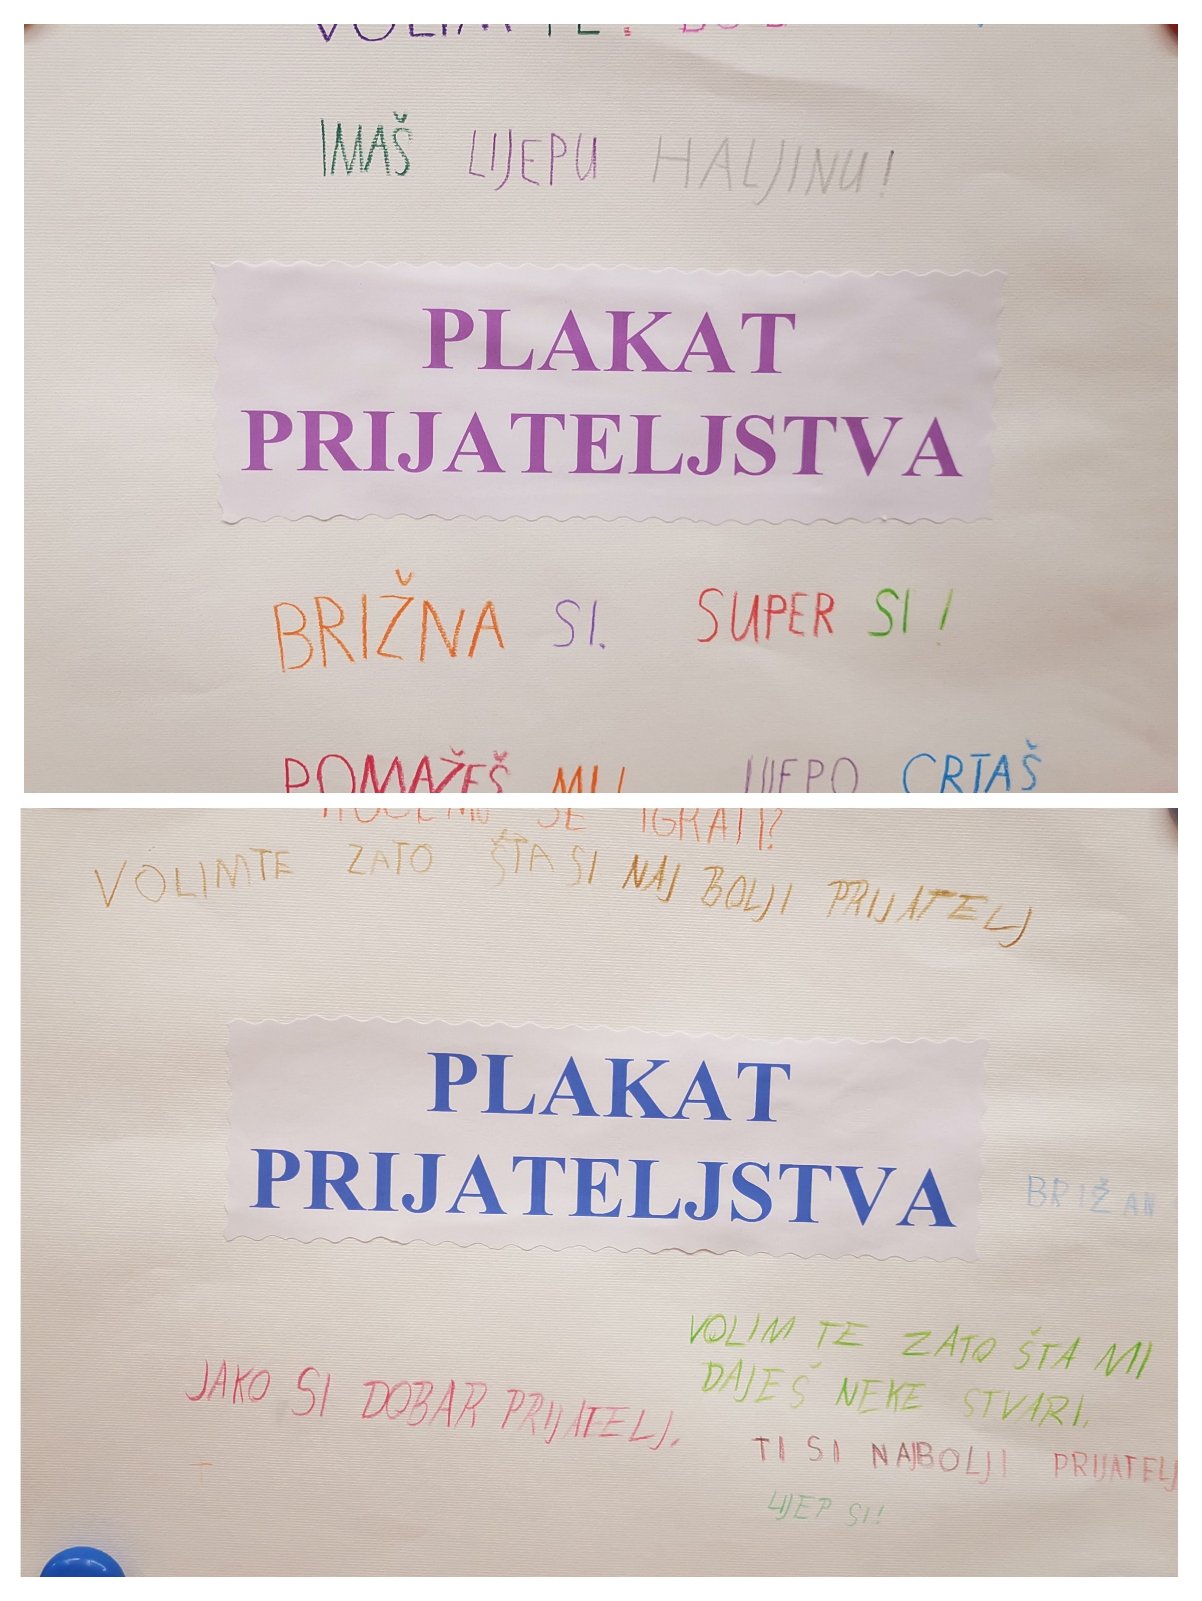 VOLIM TE!
IMAŠ LIJEPU HALJINU!
PLAKAT
PRIJATELJSTVA
BRIŽNA SI. SUPER SI!
POMAŽEŠ MI! LIJEPO CRTAŠ
SE IGRATI?
VOLIMTE ZATO ŠTA SI NAJ BOLJI PRIJATELJ
PLAKAT
PRIJATELJSTVA
BRIŽAN
VOLIM TE ZATO ŠTA MI
DAJEŠ NEKE STVARI.
JAKO SI DOBAR PRIJATELJ.
TI SI NAJBOLJI PRIJATELJ
LIJEP SI!